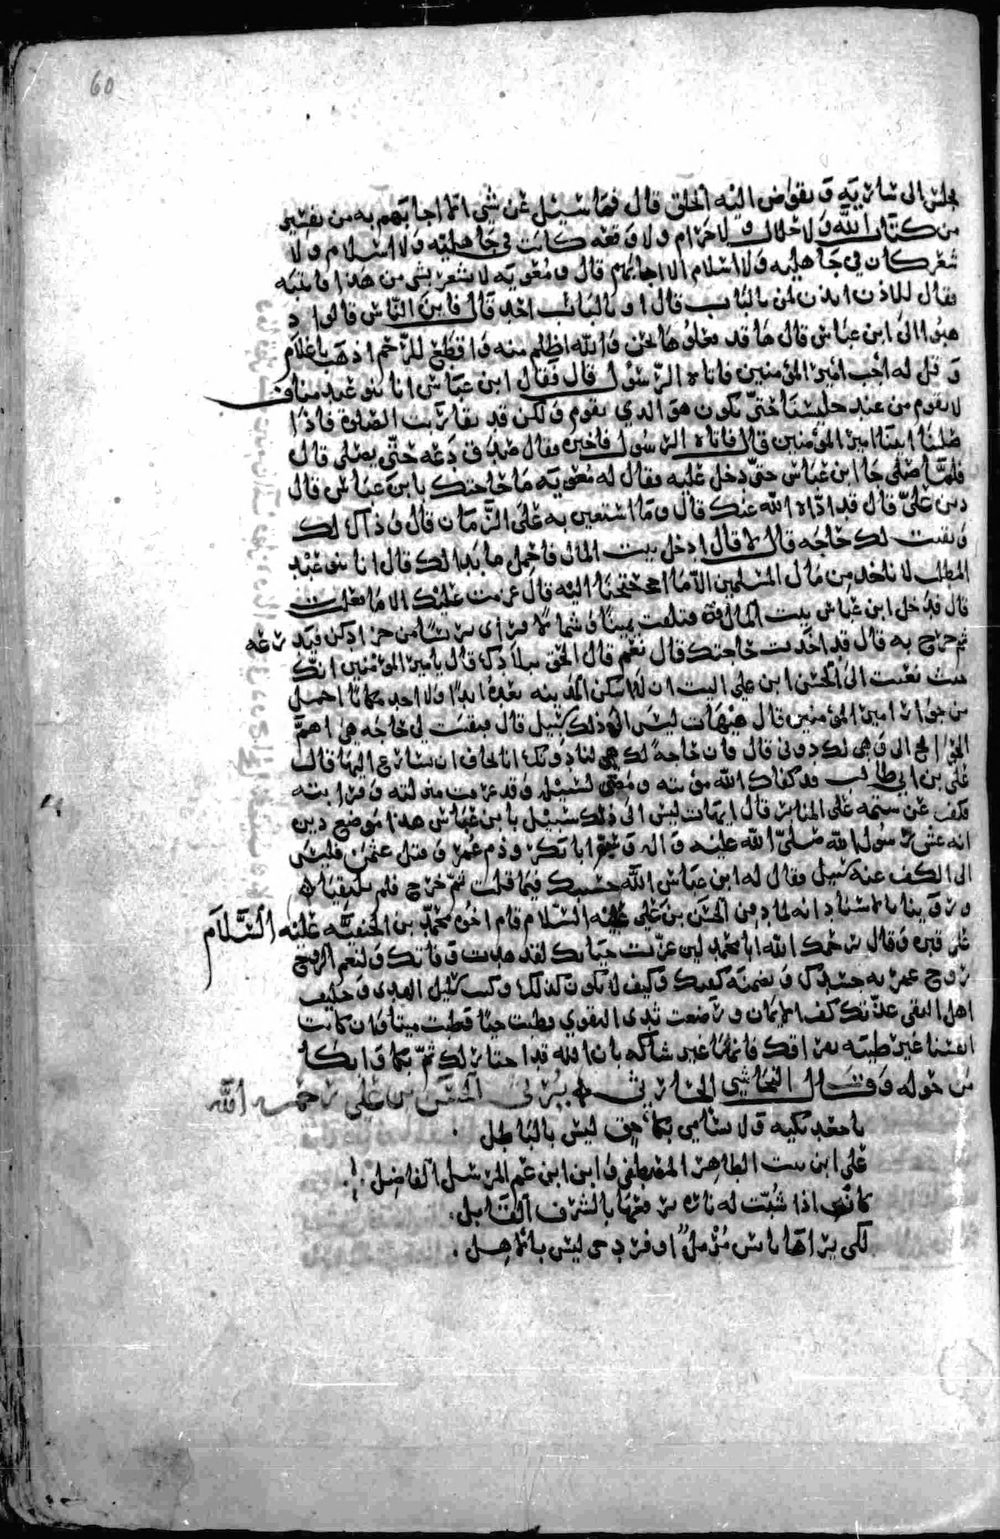 60
فجلس الى سارية وتقوض اليه الخلق قال فما سئل عن شي الا اجابهم به من تفسير
من كتاب الله ولا حلال ولا حرام ولا وقعه كانت في جاهليه ولا اسلام ولا
شعر كان في جاهليه ولا اسلام الا اجابهم قال ومعويه لا يشعر بشي من هذا
فقال للاذن ايذن لمن بالباب قال او بالباب احد قال فاين الناس قالوا ذ
هبوا الى ابن عباس قال ها قد فعلوها نحن والله اظلم منه واقطع للرحم اذهب يا غلام
وقل له اجب امير المومنين فاتاه الرسول قال فقال ابن عباس انا بنو عبد مناف
لا نقوم من عند جليسنا حتى يكون هو الذي يقوم ولكن قد تقاربت الصلوة فاذا
صلينا اتينا امير المومنين قال فاتاه الرسول فاخبره فقال صدق دعه حتى يصلي قال
فلما صلى جا ابن عباس حتى دخل عليه فقال له معويه ما حاجتك يا بن عباس قال
دين علي قال قد اداه الله عنك قال وما استعين به على الزمان قال وذاك لك
وبقيت لك حاجه قال لا قال ادخل بيت المال فاحمل ما بدا لك قال انا بنو عبد
المطلب لا ناخذ من مال المسلمين الا ما احتجنا اليه قال عزمت عليك الا ما فعلت
قال فدخل ابن عباس بيت المال فتلفت يمينا وشمالا فراى برنسا من خز ادكن فتدرعه
ثم خرج به قال قد اخذت حاجتك قال نعم قال الحق ببلادك قال يا مير المومنين انك
حيث نعيت الى الحسن ابن علي اليت ان لا اسكن المدينه بعده ابدا ولا احد مكانا اجمل
من جوار امير المومنين قال هيهات ليس الى ذلك سبيل قال فبقيت لي حاجه هي اهم
الحوايج الي وهي لك دوني قال فان حاجة لك هي لنا دونك انا نخاف ان نسارع اليها قال
علي بن ابي طالب قد كفاك الله مونته ومضى لسبيله وقد عرفت منزلته وقرابته
فكف عن شتمه على المنابر قال هيهات ليس الى ذلك سبيل يا بن عباس هذا موضع دين
انه غش رسول الله صلى الله عليه واله وابا بكر وذم عمر وقتل عثمن فليس
الى الكف عنه سبيل فقال له ابن عباس الله حسيبك فيما قلت ثم خرج فلم يلتقيا
وروينا بالاسناد انه لما دفن الحسن بن علي عليه السلام قام اخوه محمد بن الحنفيه عليه السلام
على قبره وقال رحمك الله ابا محمد لين عزت حياتك لقد هدت وفاتك ولنعم الروح
روح عمر به جسدك وتضمنه كفنك وكيف لا تكون كذلك وانت سليل الهدى وحليف
اهل التقى غذتك كف الايمان ورضعت ثدي التقوى فطبت حيا وطبت ميتا وان كانت
انفسنا غير طيبه بفراقك فانها غير شاكه بان الله قد اختار لك ثم بكا وابكا
من حوله وقال النجاشي الحارثي يرثي الحسن بن علي رحمه الله
يا جعد بكيه ولا تسامي بكا حق ليس بالباطل
على ابن بنت الطاهر المصطفى وابن ابن عم المرسل الفاضل
كان اذا شبت له ناره يرفعها بالشرف القابل
لكي يراها بايس مرمل او فرد حي ليس بالاهل